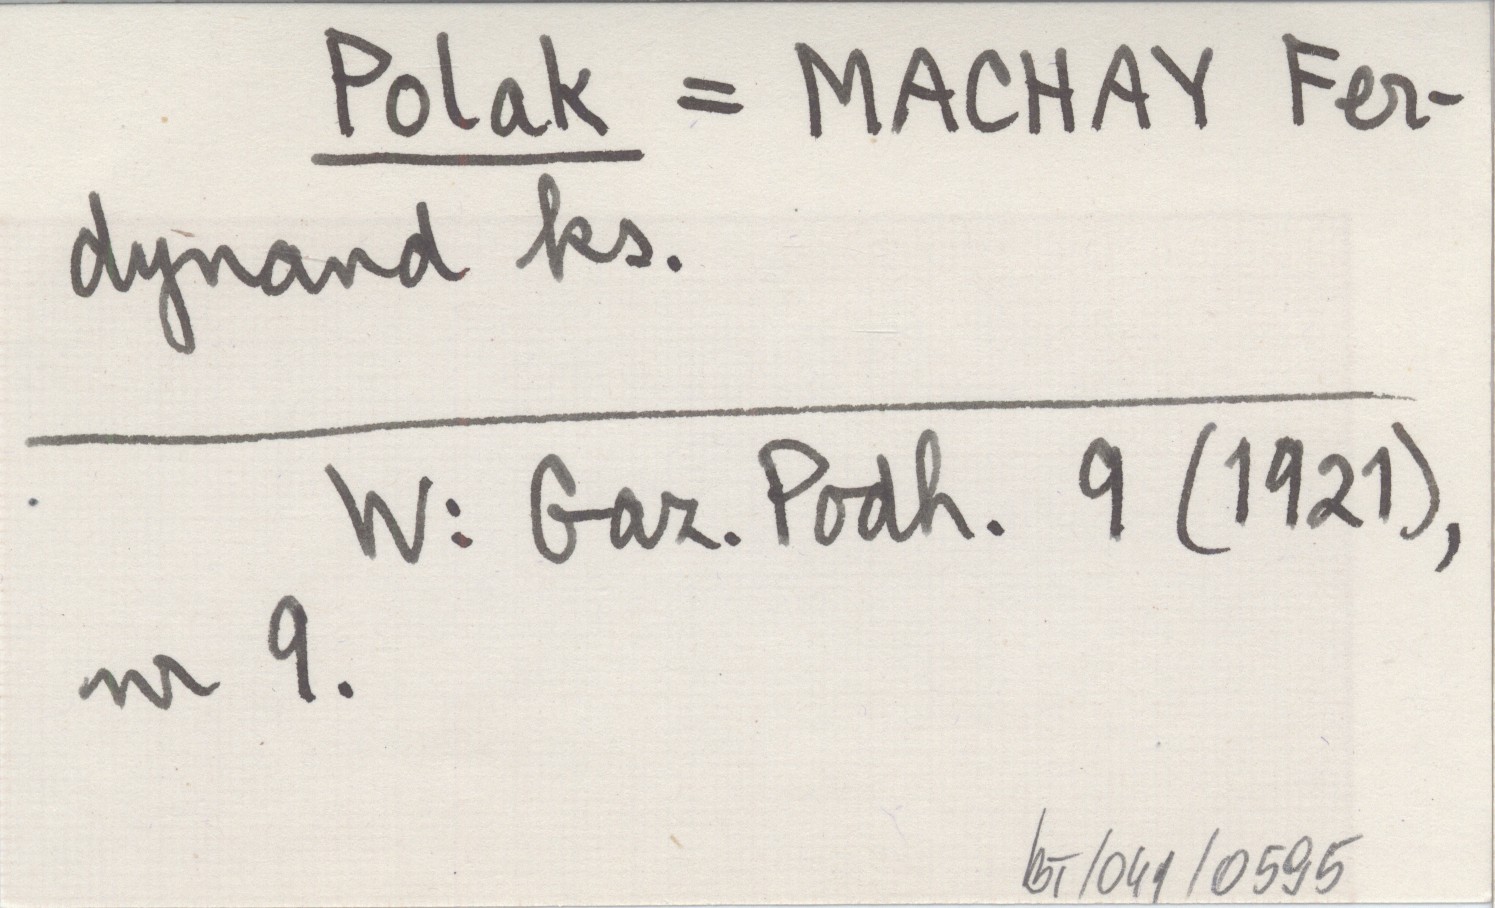 Polak = MACHAY Fer-
dynand ks.
W: Gaz. Podh. 9 (1921),
nr 9.
/0595